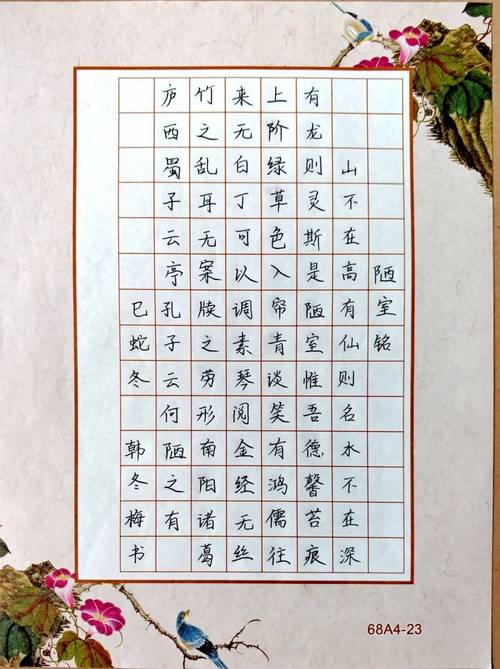 陋室铭
山不在高有仙则名水不在深
有龙则灵斯是陋室惟吾德馨苔痕
上阶绿草色入帘青谈笑有鸿儒往
来无白丁可以调素琴阅金经无丝
竹之乱耳无案牍之劳形南阳诸葛
庐西蜀子云亭孔子云何陋之有
巳蛇冬 韩冬梅书
68A4-23